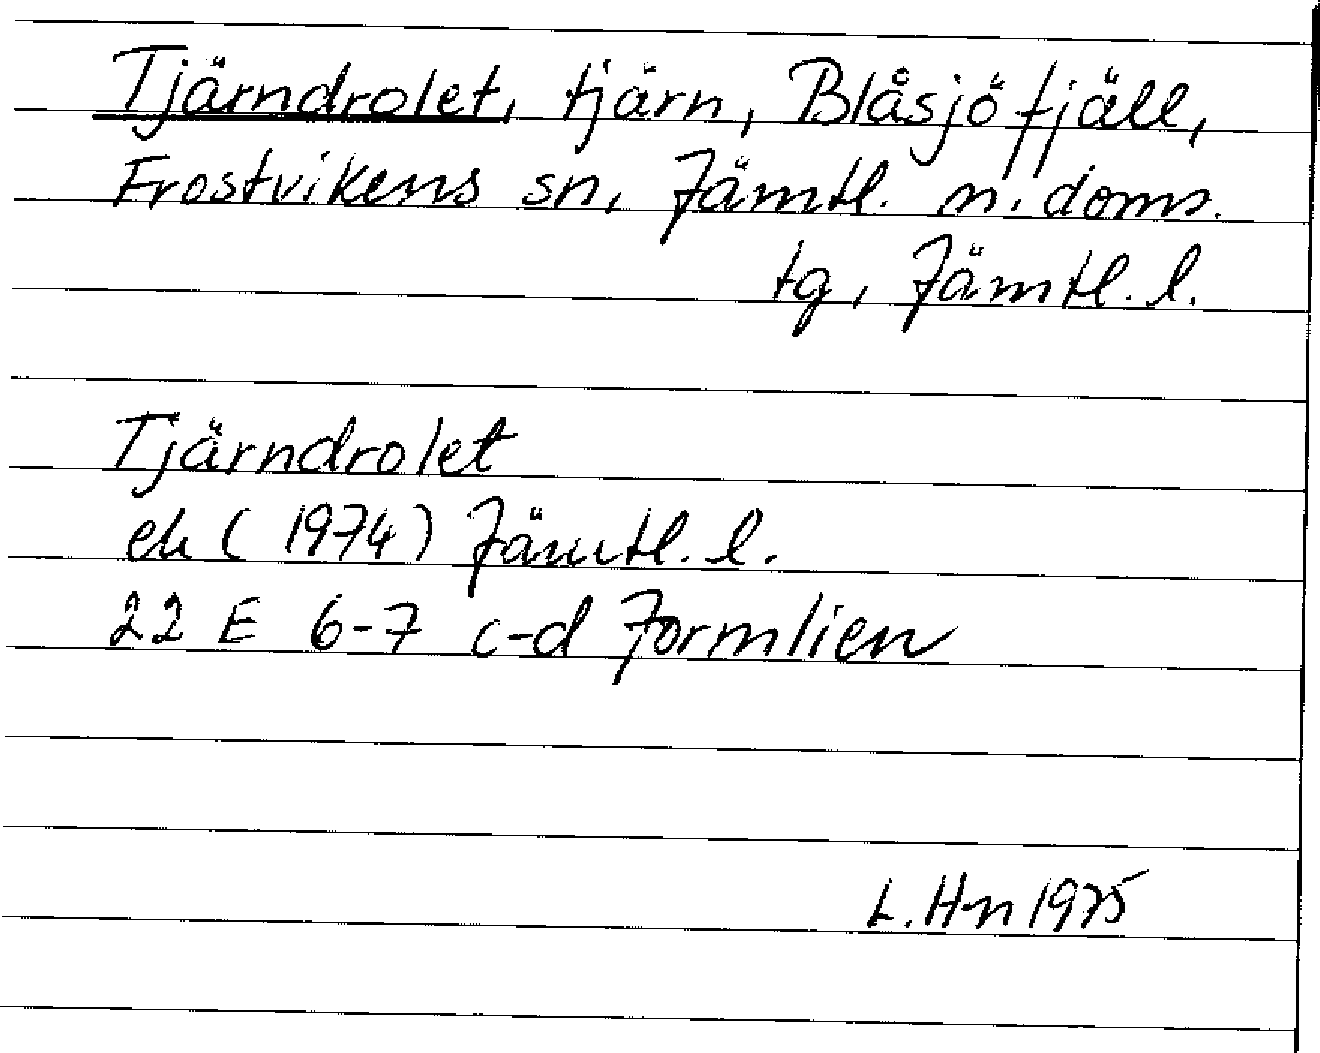 Tjärndrolet, tjärn, Blåsjöfjäll,
Frostvikens sn, Jämtl. n. doms.
tg, Jämtl. l.
Tjärndrolet
ek (1974) Jämtl. l.
22 E 6-7 c-d Jormlien
L. Hn 1975